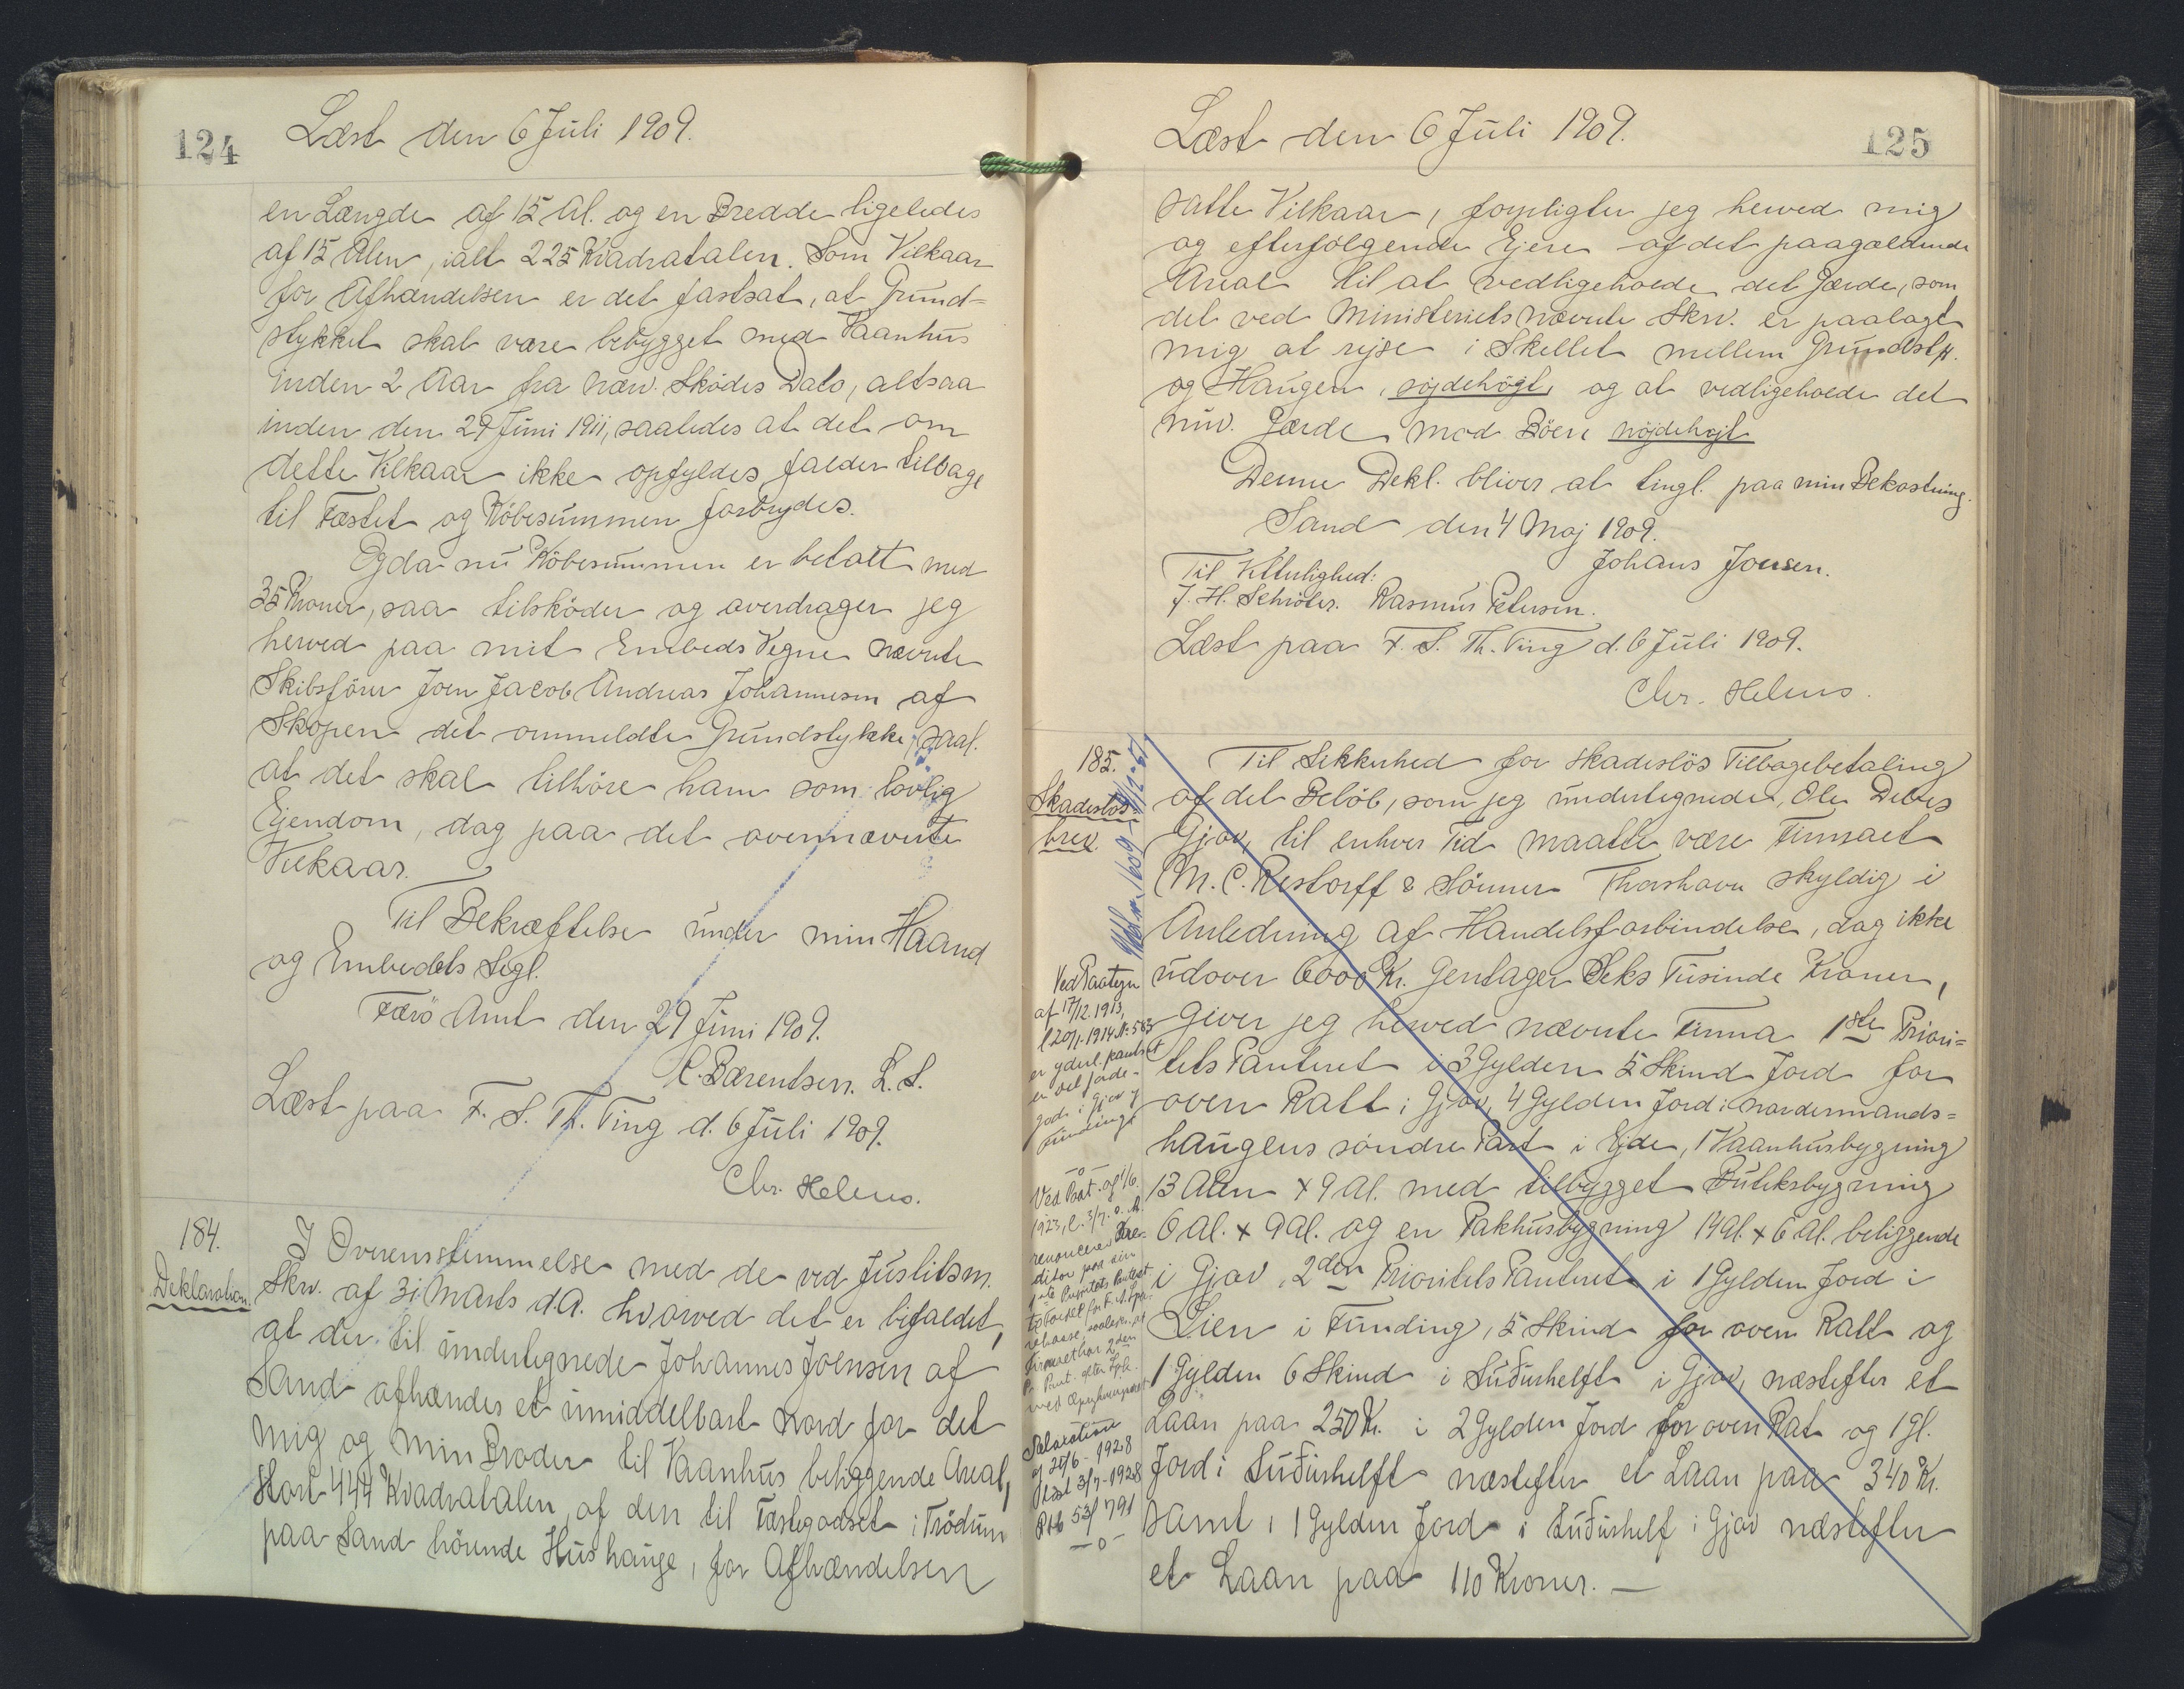 124
Læst den 6 Juli 1909.
en Længde af 15 Al. og en Bredde ligeledes
af 15 Alen, ialt 225 Kvadratalen. Som Vilkaar
for Afhændelsen er det fastsat, at Grund-
stykket skal være bebygget med Vaanhus
inden 2 Aar fra nærv. Skødes Dato, altsaa
inden den 29 Juni 1911, saaledes at det om
dette Vilkaar ikke opfyldes falder tilbage
til Fæstet og Købesummen forbrydes.
Og da nu Købesummen er betalt med
35 Kroner, saa tilsköder og overdrager jeg
herved paa mit Embeds Vegne nævnte
Skibsförer Joen Jacob Andreas Johannesen af
Skopen det ommeldte Grundstykke, saal.
at det skal tilhöre ham som lovlig
Ejendom, dog paa det ovennævnte
Vilkaar.
Til Bekræftelse under min Haand
og Embedets Segl.
Færö Amt den 29 Juni 1909.
C. Bærentsen. L. S.
Læst paa F. S. Th. Ting d. 6 Juli 1909.
Chr. Helms.
184.
Deklaration.
I Overensstemmelse med de ved Justitsm.
Skr. af 31 Marts d.A. hvorved det er bifaldet,
at der til undertegnede Johannes Joensen af
Sand afhændes et umiddelbart Nord for det
mig og min Broder til Vaanhus beliggende Areal,
stort 444 Kvadratalen, af den til Fæstegodset i Trödum
paa Sand hörende Hushauge, for Afhændelsen
Læst den 6 Juli 1909.
125
satte Vilkaar, forpligter jeg herved mig
og efterfølgende Ejere af det paagældende
Areal til at vedligeholde det Gærde, som
det ved Ministeriets nævnte Skr. er paalagt
mig at rejse i Skellet mellem Grundst.
og Haugen, nöjdehögt, og at vedligeholde det
nuv. Gærde mod Böen nöjdehöjt
Denne Dekl. bliver at tingl. paa min Bekostning.
Sand den 4 Maj 1909.
Johans Joensen.
Til Vitterlighed:
J. H. Schröter. Rasmus Petersen.
Læst paa F. S. Th. Ting d. 6 Juli 1909.
Chr. Helms.
185.
Skadeslös-
brev.
Til Sikkerhed for skadeslös Tilbagebetaling
af det Belöb, som jeg undertegnede, Ole Debes
Gjov, til enhver Tid maatte være Firmaet
M. C. Restorff & Sönner Thorshavn skyldig i
Anledning af Handelsforbindelse, dog ikke
udover 6000 Kr. gentager Seks Tusinde Kroner,
giver jeg herved nævnte Firma 1ste Priori-
tets Panteret i 3 Gylden 5 Skind Jord for
oven Ratt i Gjov, 4 Gylden Jord i Nordermands-
haugens söndre Part i Ejde, 1 Vaanhusbygning
13 Alen x 9 Al. med tilbygget Butiksbygning
6 Al. x 9 Al. og en Pakhusbygning 14 Al. x 6 Al. beliggende
i Gjov, 2den Prioritets Panteret i 1 Gylden Jord i
Lien i Funding, 5 Skind for oven Ratt og
1 Gylden 6 Skind i Suðurhelft i Gjov, næstefter et
Laan paa 250 Kr. i 2 Gylden Jord for oven Rat og 1 Gl.
Jord i Suðurhelft næstefter et Laan paa 340 Kr.
samt i 1 Gylden Jord i Suðurhelf i Gjov næstefter
et Laan paa 110 Kroner. —
Ved Paategn
af 17/12. 1913,
l 20/1. 1914 N. 583
er yderl. pantsat
en del jorde-
gods i Gjov og
Funding
—o—
Ved Paat. af 1/6.
1923, l. 3/7. s. A.
renoncerer Kre-
ditor paa sin
Relaxation
af 25/6 - 1928
læst 3/7 - 1928
Ptb 53/791
—o—